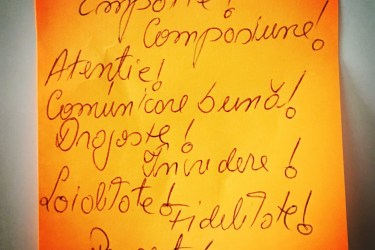 Empatie!
Compasiune!
Atenție!
Comunicare bună!
Dragoste!
Încredere!
Loialitate!
Fidelitate!